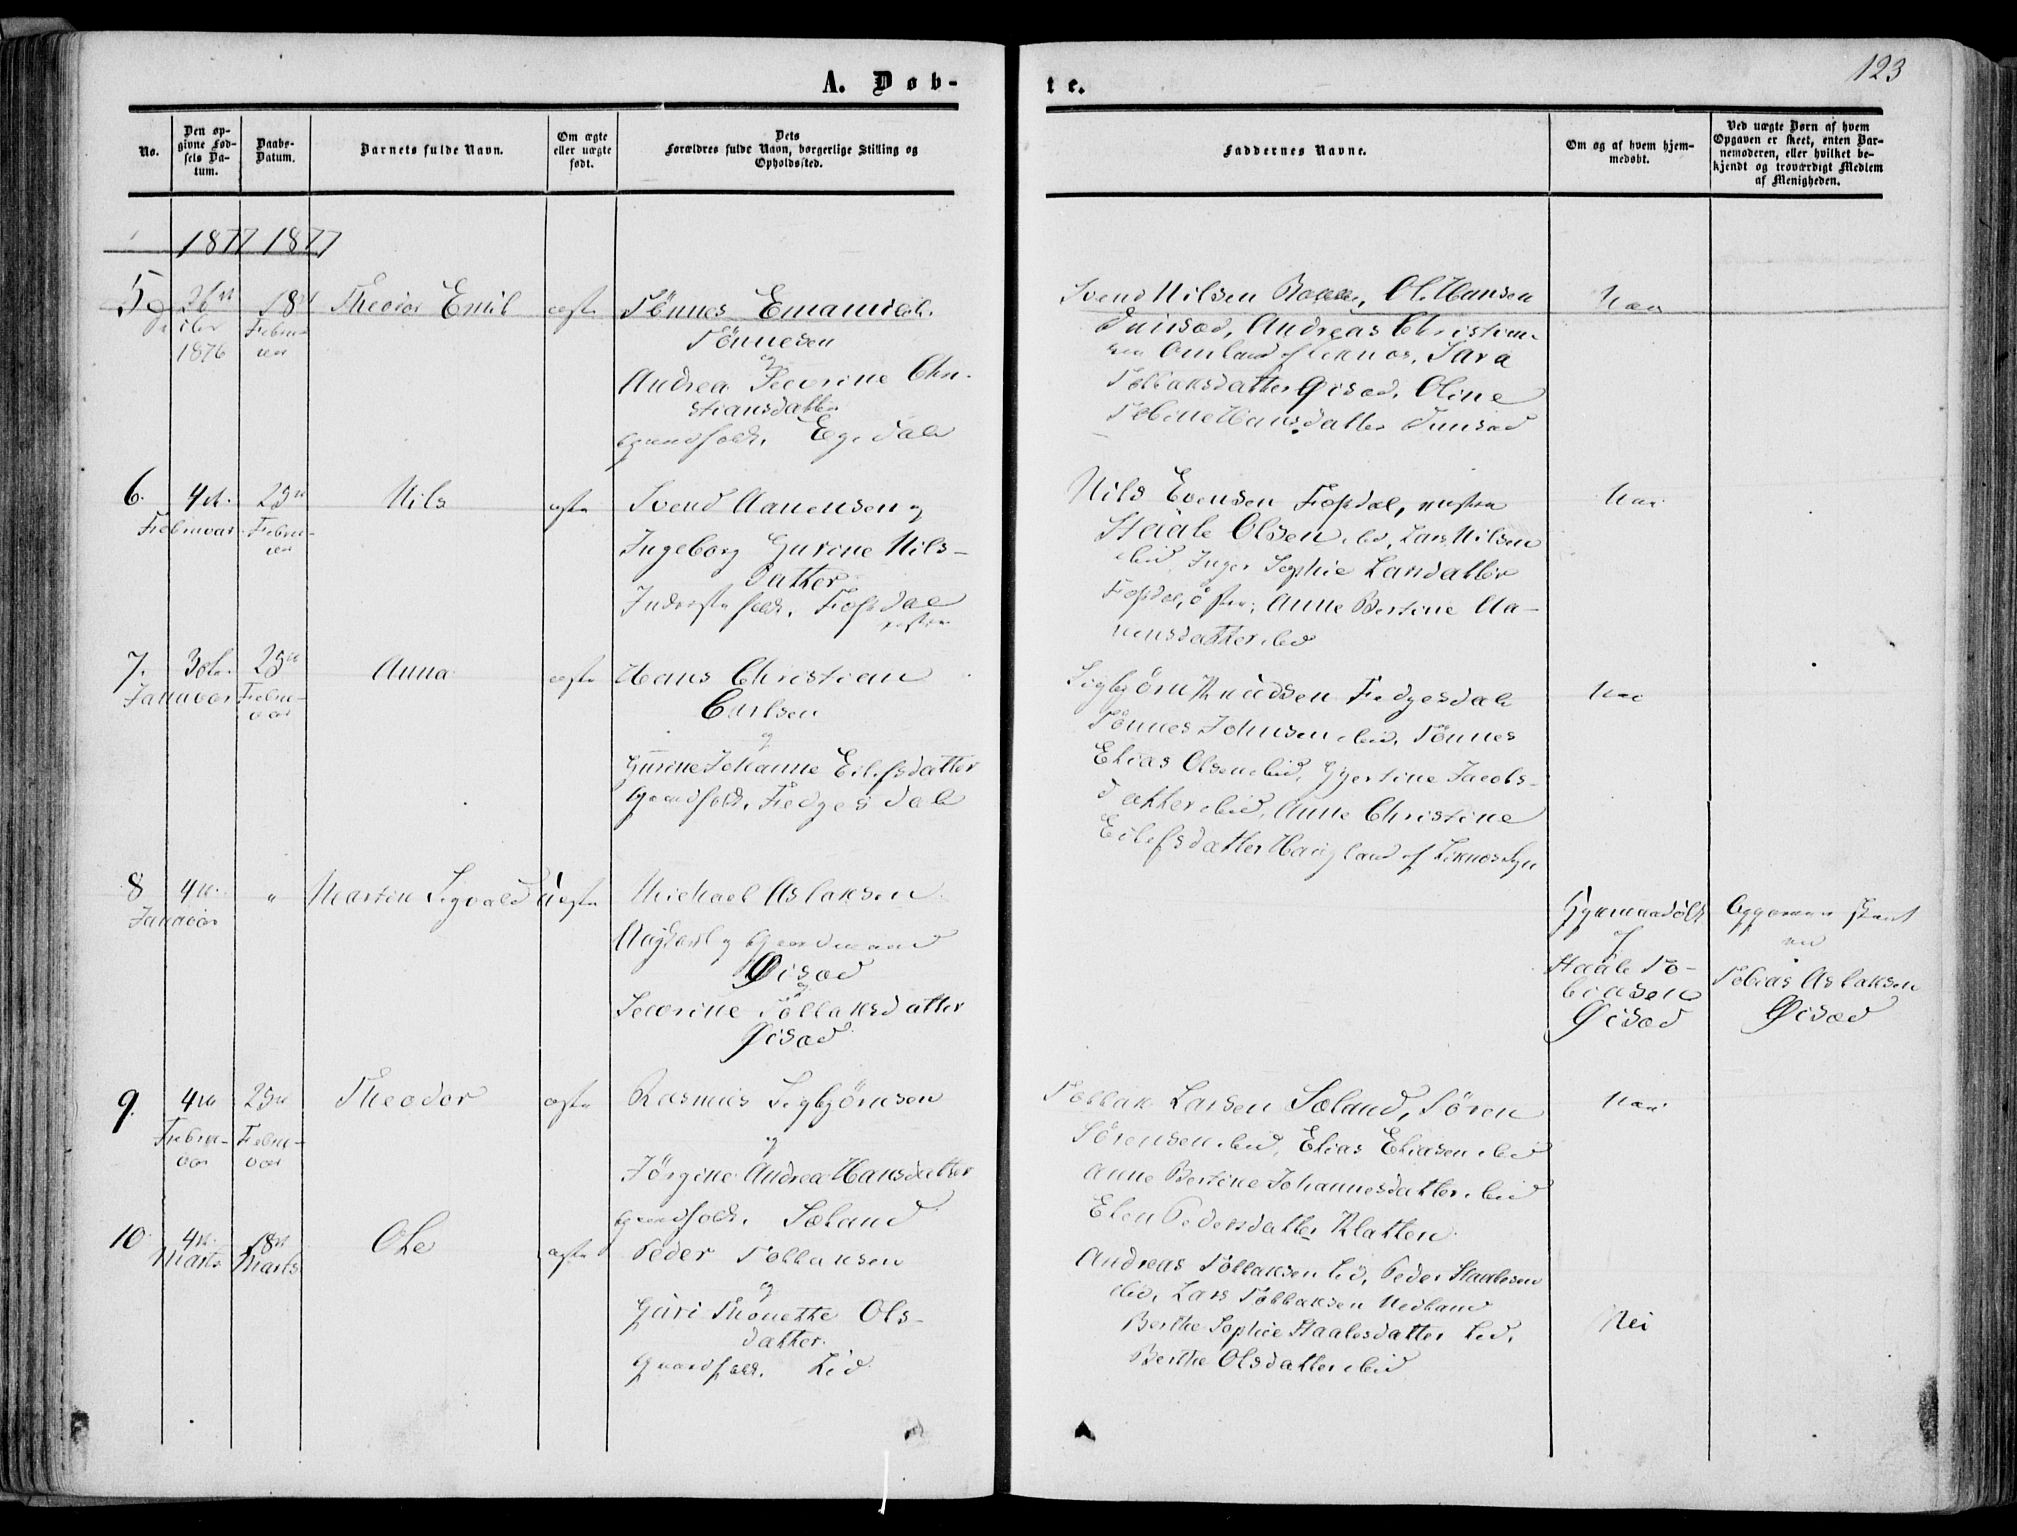 123
A. Døb-
te.
No.
Den op-
givne Fød-
sels Da-
tum.
Daabs-
Datum.
Barnets fulde Navn.
Om ægte
eller uægte
født.
Dets
Forældres fulde Navn, borgerlige Stilling og
Opholdssted.
Faddernes Navne.
Om og af hvem hjem-
medøbt.
Ved uægte Børn af hvem
Opgaven er skeet, enten Bar-
nemoderen, eller hvilket be-
kjendt og troværdigt Medlem
af Menigheden.
1877 1877
5
1876
18de
Februar
Theodor Emil
ægte
Tönnes Emanuel
Tönnesen
og
Andrea Severine Chri-
stiansdatter
Gaardfolk. Egedal
Svend Nilsen Ole Hansen
Andreas Christian-
sen Omland af Liknes, Sara
Tollaksdatter Øisæd, Oline
Tobine Hansdatter
6.
4de
Februar
25de
Februar
Nils
ægte
Svend Aanensen og
Ingeborg Gurine Nils-
datter
Inderstefolk. Fossdal
vestre
Nils Evensen Fossdal, vestre
Staale Olsen ibid, Lars Nilsen
ibid, Inger Sophie Larsdatter
Fossdal, østre, Anne Bertine Aa-
nensdatter ibid
7.
Januar
25de
Februar
Anna
ægte
Hans Christian
Carlsen
og
Gurine Johanne Eilefsdatter
Gaardfolk. Fedgesdal
Sigbjörn Knudsen Fedgesdal
Tönnes Johnsen ibid, Tönnes
Elias Olsen ibid, Gjertine Jacobs-
datter ibid, Anne Christine
Eilefsdatter Haugland af Liknes
8
4de
Januar
"
Martin Sigvald
Uægte
Michael Aslaksen
Ungkarl og Gaardmand
Øisæd
og
Severine Tollaksdatter
Øisæd
Hjemmedøbt
af
Staale To-
biasen
Øisæd
Opgaven skeet
ved
Tobias Aslaksen
Øisæd
9.
4de
Februar
25de
Februar
Theodor
ægte
Rasmus Sigbjörnsen
og
Jörgine Andrea Hansdatter
Gaardfolk. Sæland
Tollak Larsen Sæland, Sören
Sörensen ibid, Elias Eliasen ibid
Anne Bertine Johannesdatter ibid
Elen Pedersdatter Klatten
10.
4de
Marts
18de
Marts
Ole
ægte
Peder Tollaksen
og
Guri Thonette Ols-
datter
Gaardfolk. Lid
Andreas Tollaksen Lid, Peder Staalesen
ibid, Lars Tollaksen Nedland
Berthe Sophie Staalesdatter Lid,
Berthe Olsdatter ibid
Nei